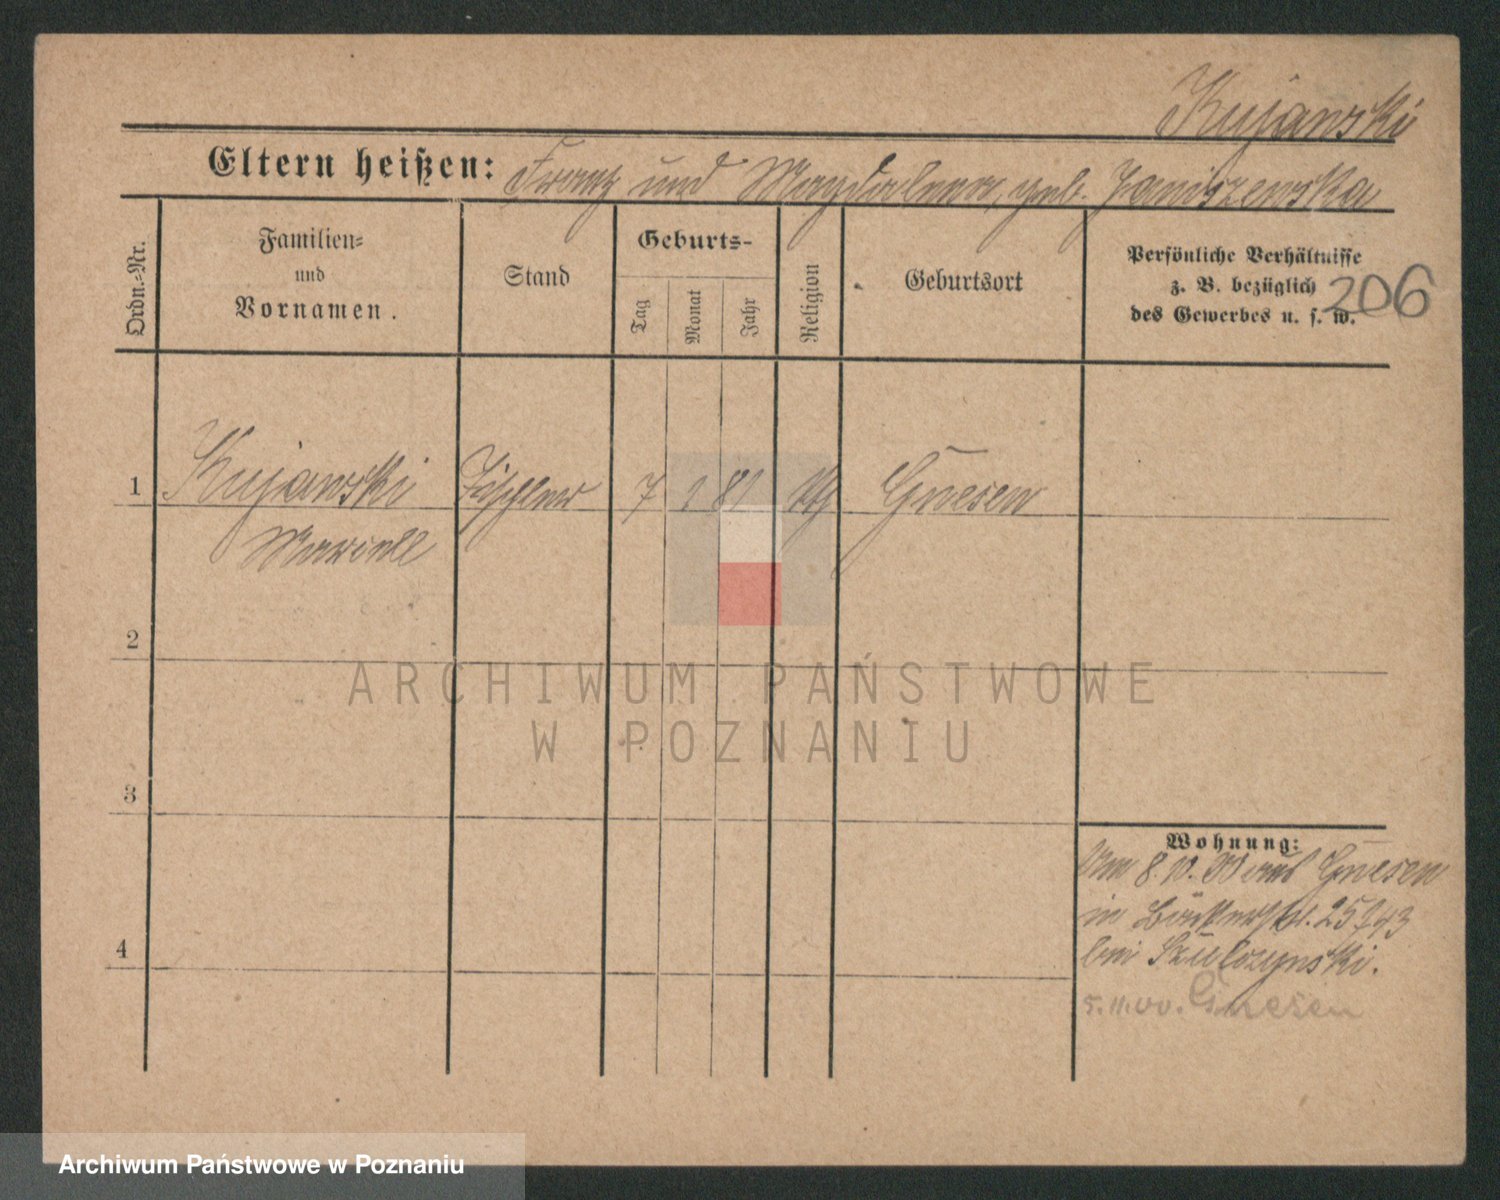 Kujawski
Eltern heißen: Franz und Magdalena, geb. Janiszewska
Ordn.-Nr.
Familien-
und
Vornamen.
Stand
Geburts-
Tag
Monat
Jahr
Religion
Geburtsort
Persönliche Verhältnisse
z. B. bezüglich
des Gewerbes u. s. w.
206
1 Kujawski Tischler 7 1 81 kth Gnesen
2
3
4
Wohnung:
8. 10. 00 aus Gnesen
in Bäckerstr. 25
bei Szulczynski.
5. 11. 00. Gnesen
ARCHIWUM PAŃSTWOWE
W POZNANIU
Archiwum Państwowe w Poznaniu